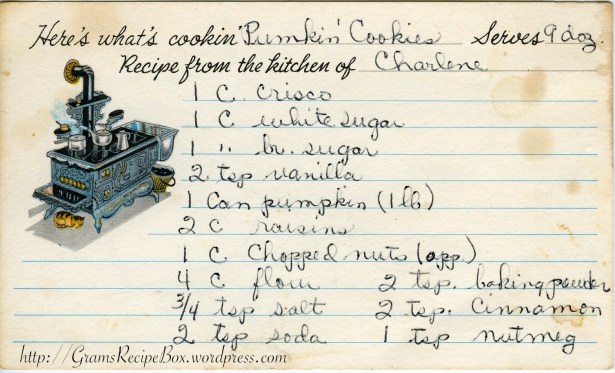 Here's what's cookin' Pumkin Cookies Serves 9 doz.
Recipe from the kitchen of Charlene
1 C. Crisco
1 C white sugar
1 " br. sugar
2 tsp vanilla
1 Can pumpkin (1 lb)
2 C raisins
1 C. Chopped nuts (opp.)
4 C flour 2 tsp. baking powder
3/4 tsp salt 2 tsp. Cinnamon
2 tsp soda 1 tsp nutmeg
http://GramsRecipeBox.wordpress.com